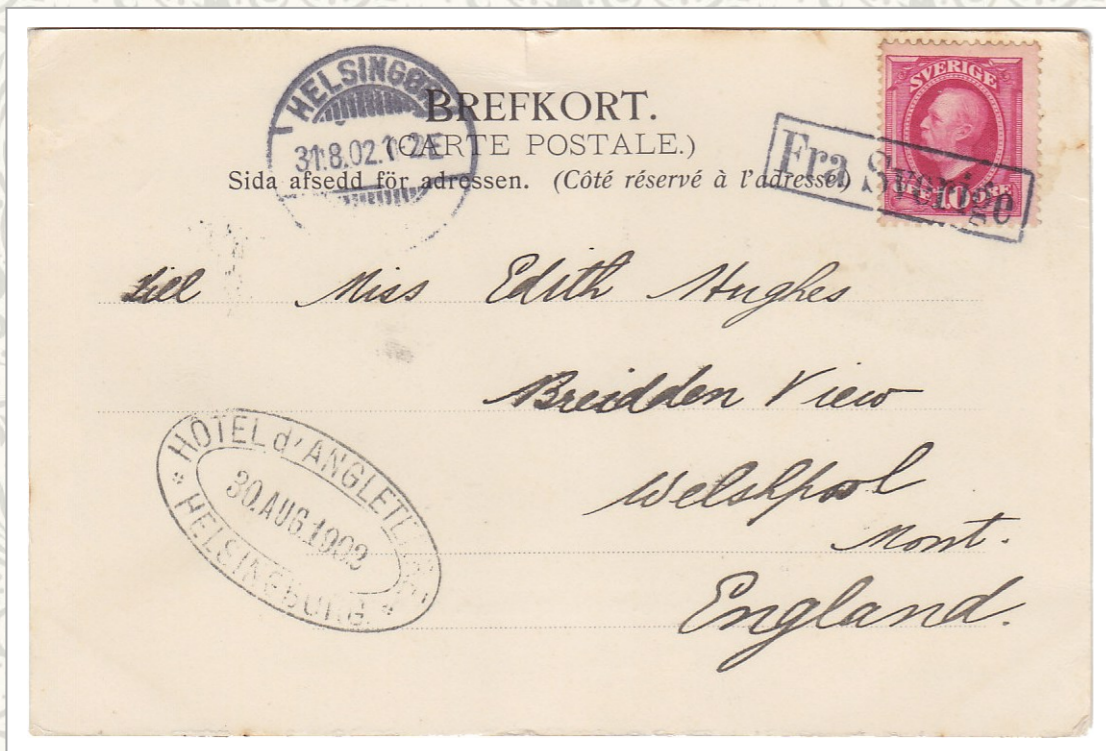 HELSINGØR
31.8.02.1-2E
BREFKORT.
(CARTE POSTALE.)
Sida afsedd för adressen. (Côté réservé à l'adresse.)
SVERIGE
10 ÖRE
Fra Sverige
till Miss Edith Hughes
Breidden View
Welshpool
Mont.
England.
HÔTEL d'ANGLETERRE
30.AUG.1902
* HELSINGBORG. *